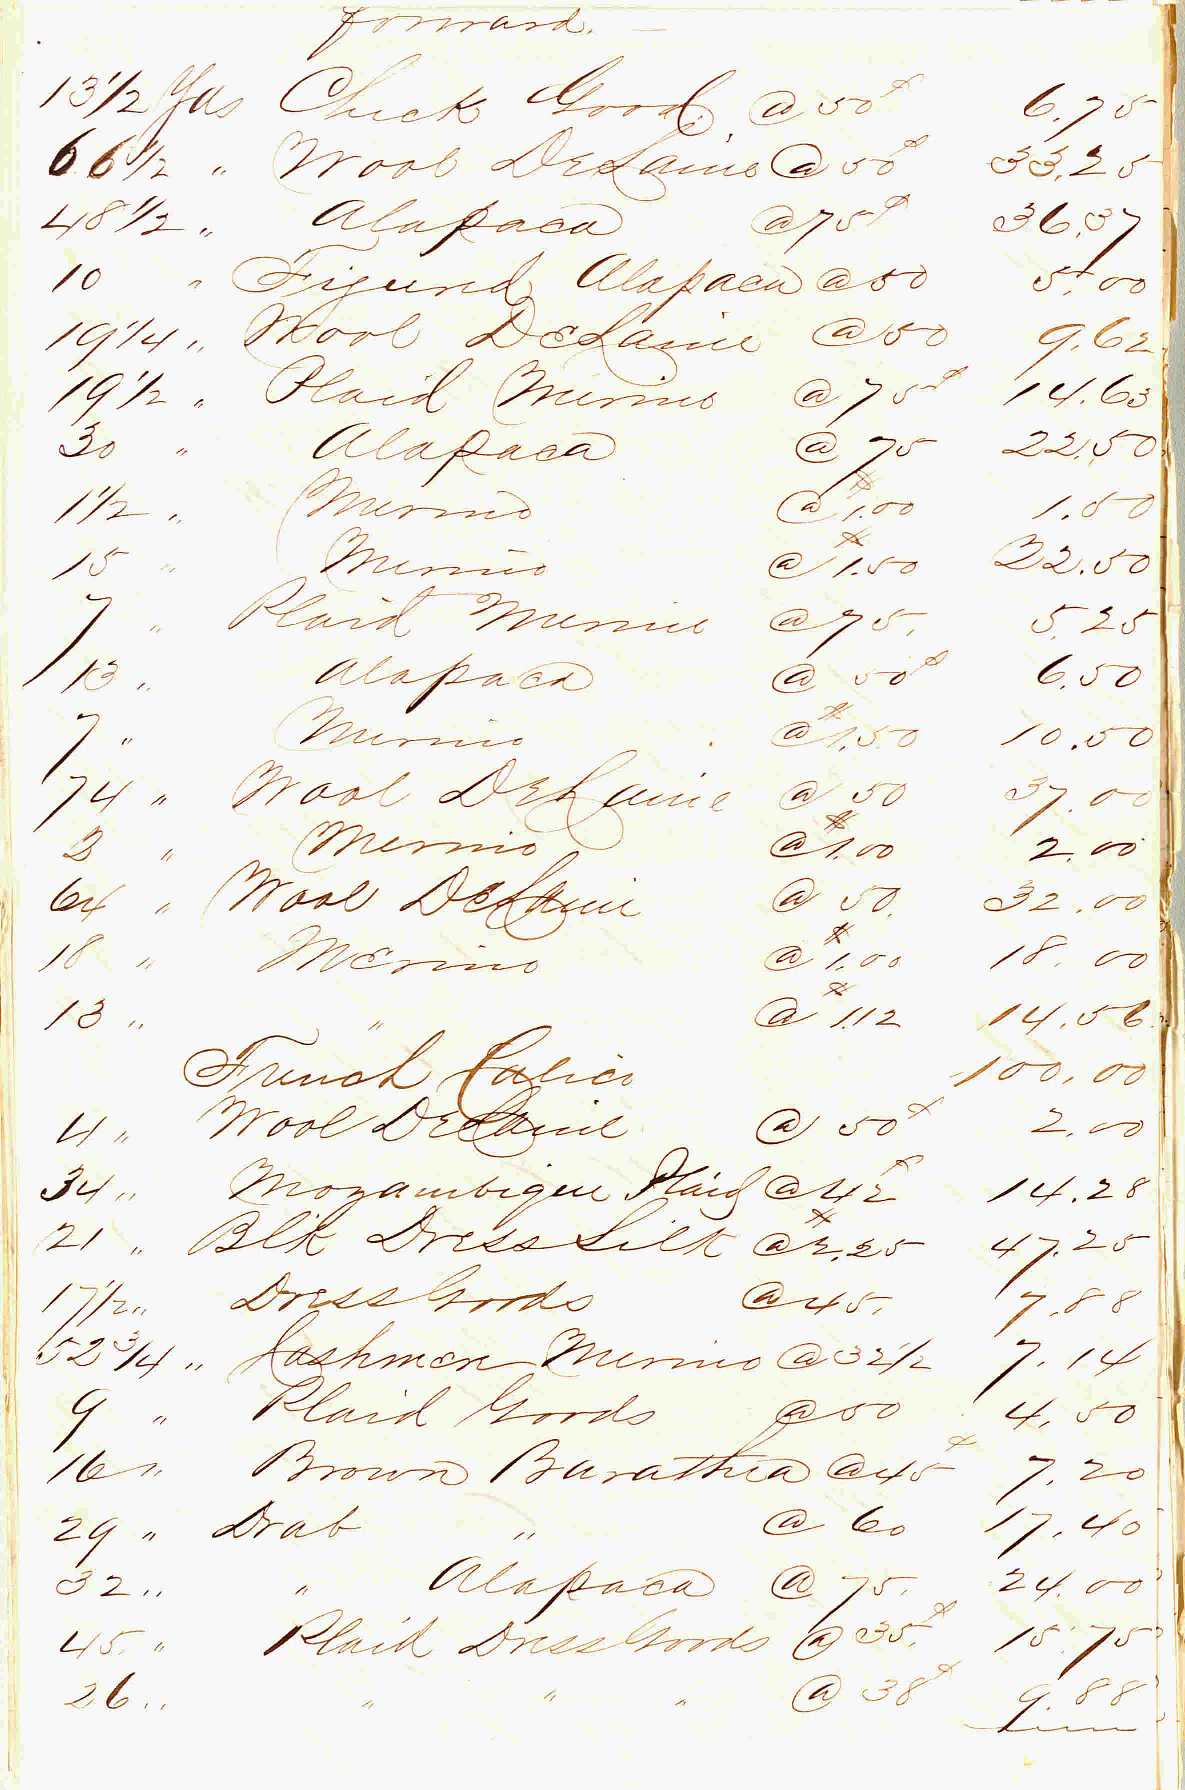 forward. —
13 1/2 Yds Check Goods @ 50¢ 6.75
66 1/2 " Wool DeLaine @ 50¢ 33.25
48 1/2 " Alapaca @ 75¢ 36.37
10 " Figured Alapaca @ 50 5.00
19 1/4 " Wool DeLaine @ 50 9.62
19 1/2 " Plaid Merino @ 75¢ 14.63
30 " Alapaca @ 75 22.50
1 1/2 " Merino @ $1.00 1.50
15 " Merino @ $1.50 22.50
7 " Plaid Merino @ 75. 5.25
13 " Alapaca @ 50¢ 6.50
7 " Merino @ $1.50 10.50
74 " Wool DeLaine @ 50 37.00
2 " Merino @ $1.00 2.00
64 " Wool DeLaine @ 50. 32.00
18 " Merino @ $1.00 18.00
13 " " @ $1.12 14.56
French Calico 100.00
4 " Wool DeLaine @ 50¢ 2.00
34 " Mozambique Plaid @ 42¢ 14.28
21 " Blk Dress Silk @ $2.25 47.25
17 1/2 " Dress Goods @ 45. 7.88
52 3/4 " Cashmere Merino @ 32 1/2 7.14
9 " Plaid Goods @ 50 4.50
16 " Brown Barathea @ 45¢ 7.20
29 " Drab " @ 60 17.40
32 " " Alapaca @ 75. 24.00
45. " Plaid Dress Goods @ 35¢. 15.75
26 " " " " @ 38¢ 9.88